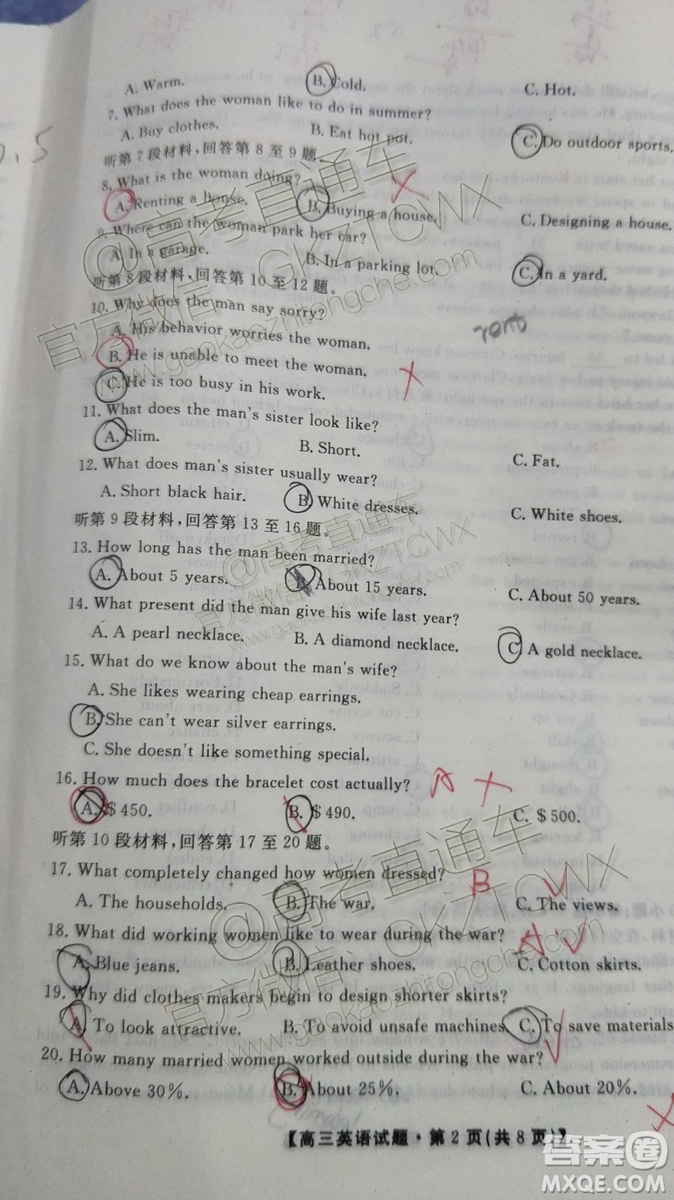 A. Warm. B. Cold. C. Hot.
7. What does the woman like to do in summer?
A. Buy clothes. B. Eat hot pot. C. Do outdoor sports.
听第 7 段材料，回答第 8 至 9 题。
8. What is the woman doing?
A. Renting a house. B. Buying a house. C. Designing a house.
9. Where can the woman park her car?
A. In a garage. B. In a parking lot. C. In a yard.
听第 8 段材料，回答第 10 至 12 题。
10. Why does the man say sorry?
A. His behavior worries the woman.
B. He is unable to meet the woman.
C. He is too busy in his work.
11. What does the man's sister look like?
A. Slim. B. Short. C. Fat.
12. What does man's sister usually wear?
A. Short black hair. B. White dresses. C. White shoes.
听第 9 段材料，回答第 13 至 16 题。
13. How long has the man been married?
A. About 5 years. B. About 15 years. C. About 50 years.
14. What present did the man give his wife last year?
A. A pearl necklace. B. A diamond necklace. C. A gold necklace.
15. What do we know about the man's wife?
A. She likes wearing cheap earrings.
B. She can't wear silver earrings.
C. She doesn't like something special.
16. How much does the bracelet cost actually? A
A. $ 450. B. $ 490. C. $ 500.
听第 10 段材料，回答第 17 至 20 题。
17. What completely changed how women dressed? B
A. The households. B. The war. C. The views.
18. What did working women like to wear during the war? A
A. Blue jeans. B. Leather shoes. C. Cotton skirts.
19. Why did clothes makers begin to design shorter skirts?
A. To look attractive. B. To avoid unsafe machines. C. To save materials
20. How many married women worked outside during the war?
A. Above 30%. B. About 25%. C. About 20%.
【高三英语试题·第 2 页(共 8 页)】
@高考直通车
官方微信：GKZTCWX
www.gaokaozhitongche.com
@高考直通车
官方微信：GKZTCWX
www.gaokaozhitongche.com
答案圈
MXQE.COM